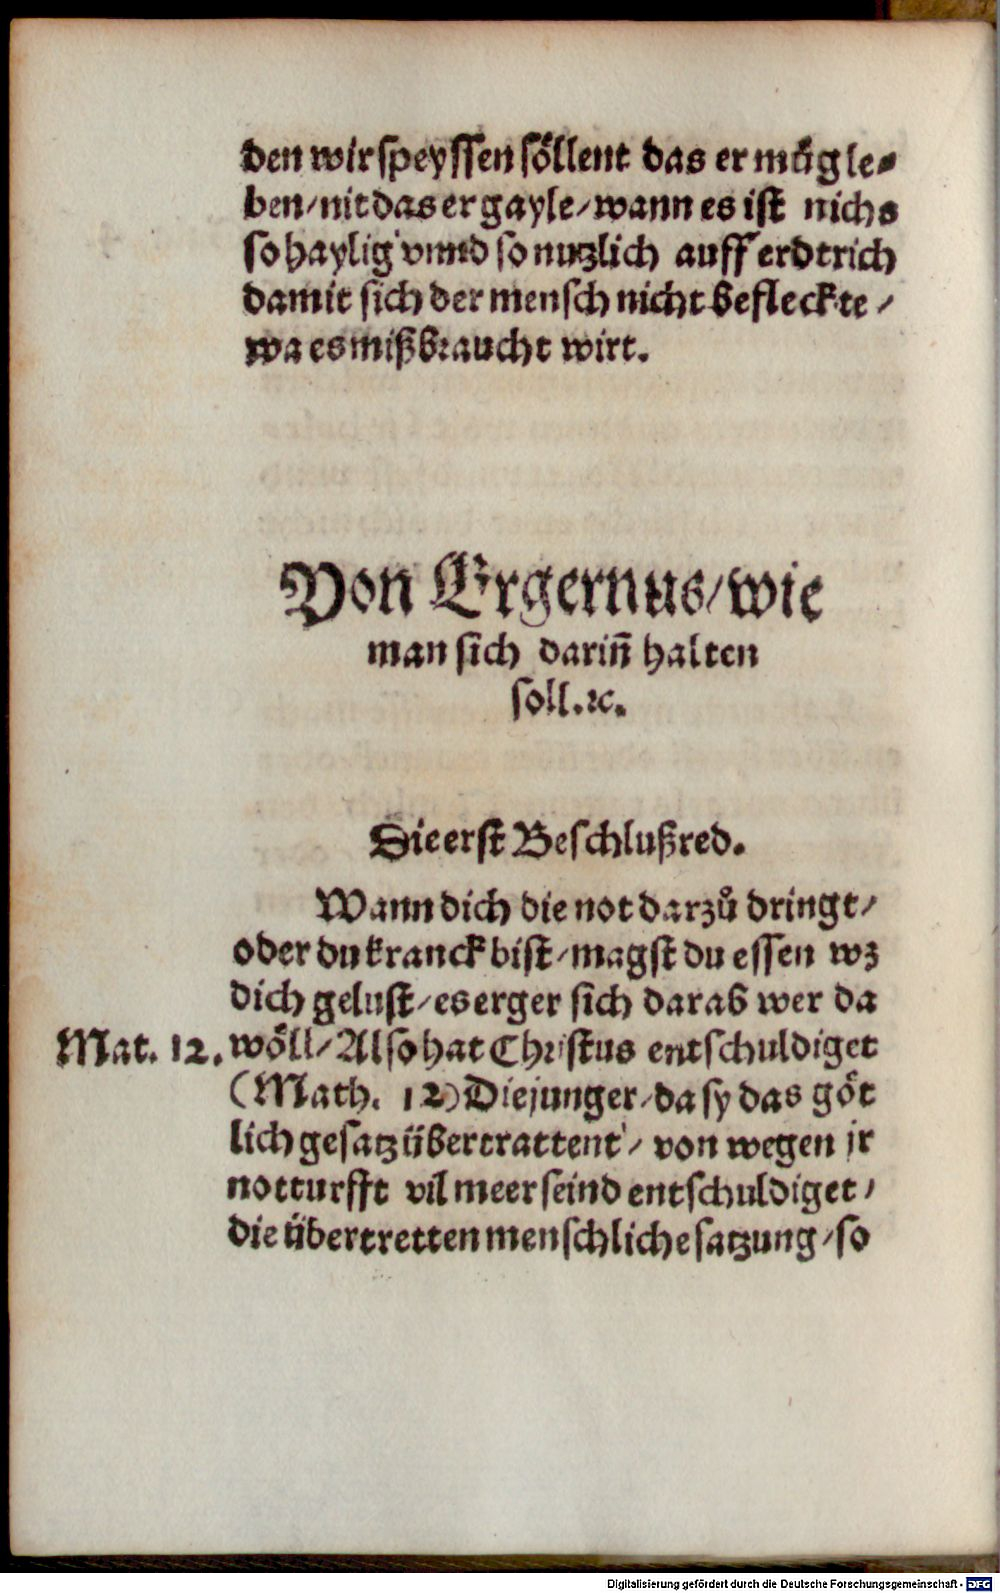 den wir speyssen söllent das er mög le⸗
ben/ nit das er gayle/ wann es ist nichs
so haylig vnnd so nutzlich auff erdtrich
damit sich der mensch nicht befleckte/
wa es mißbraucht wirt.
Von Ergernus/ wie
man sich dariñ halten
soll. ꝛc.
Die erst Beschlußred.
Wann dich die not darzů dringt/
oder du kranck bist/ magst du essen wz
dich gelust/ es erger sich darab wer da
Mat. 12. wöll/ Also hat Christus entschuldiget
(Math. 12) Die junger/ da sy das göt
lich gesatz übertrattent/ von wegen jr
notturfft vil meer seind entschuldiget/
die übertretten menschliche satzung/ so
Digitalisierung gefördert durch die Deutsche Forschungsgemeinschaft - DFG